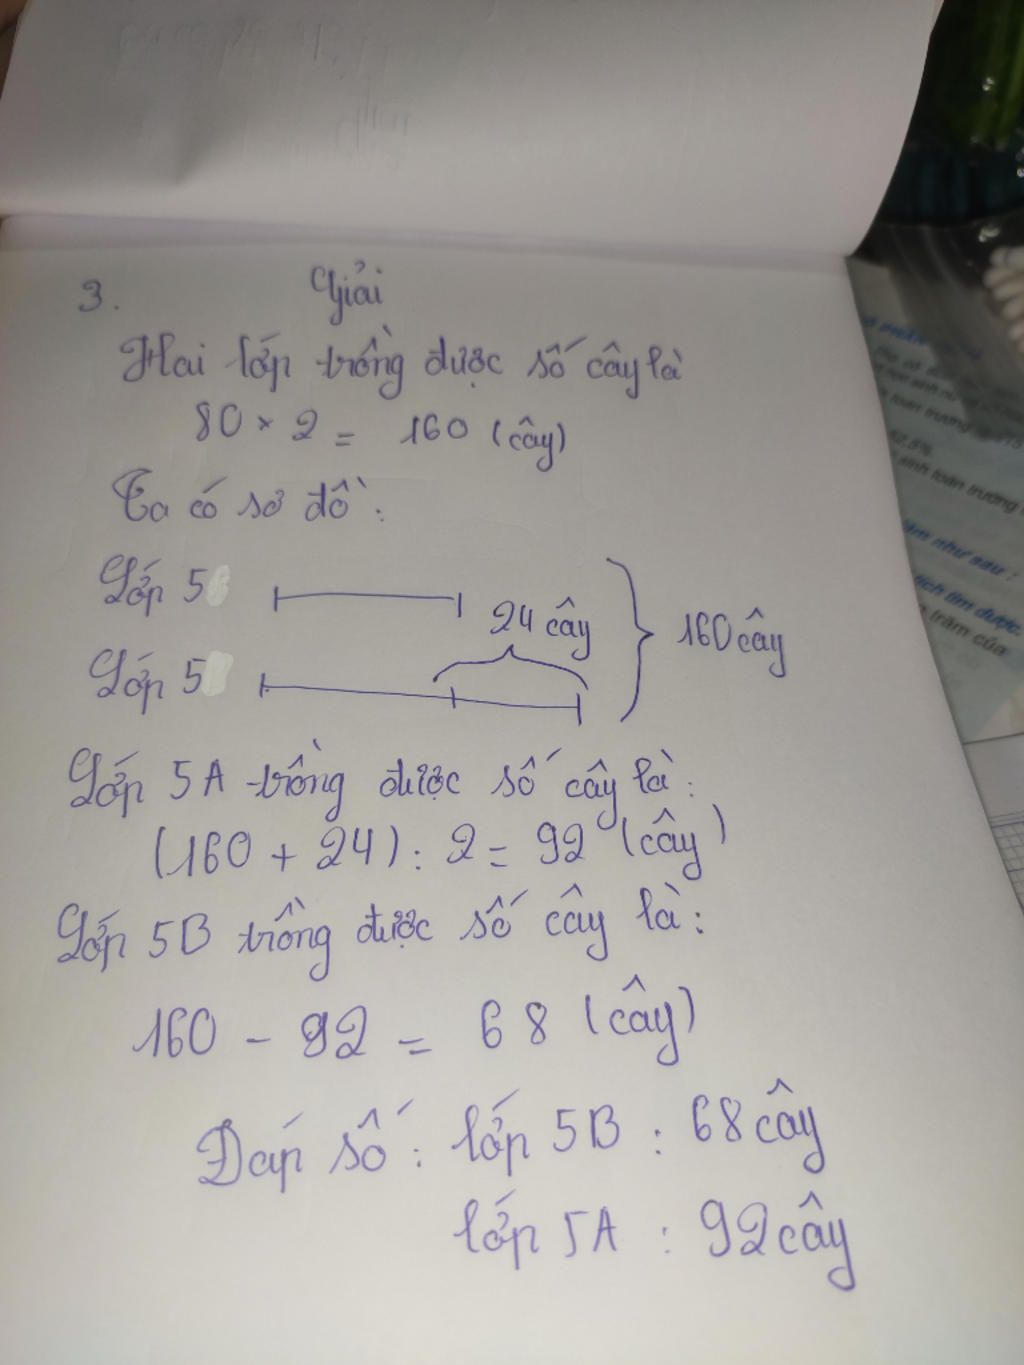 3. Giải
Hai lớp trồng được số cây là
80 × 2 = 160 (cây)
Ta có sơ đồ :
Lớp 5
24 cây
160 cây
Lớp 5
Lớp 5A trồng được số cây là :
(160 + 24) : 2 = 92 (cây)
Lớp 5B trồng được số cây là :
160 - 92 = 68 (cây)
Đáp số : lớp 5B : 68 cây
lớp 5A : 92 cây
12,5%
như sau :
tích tìm được.
trăm của